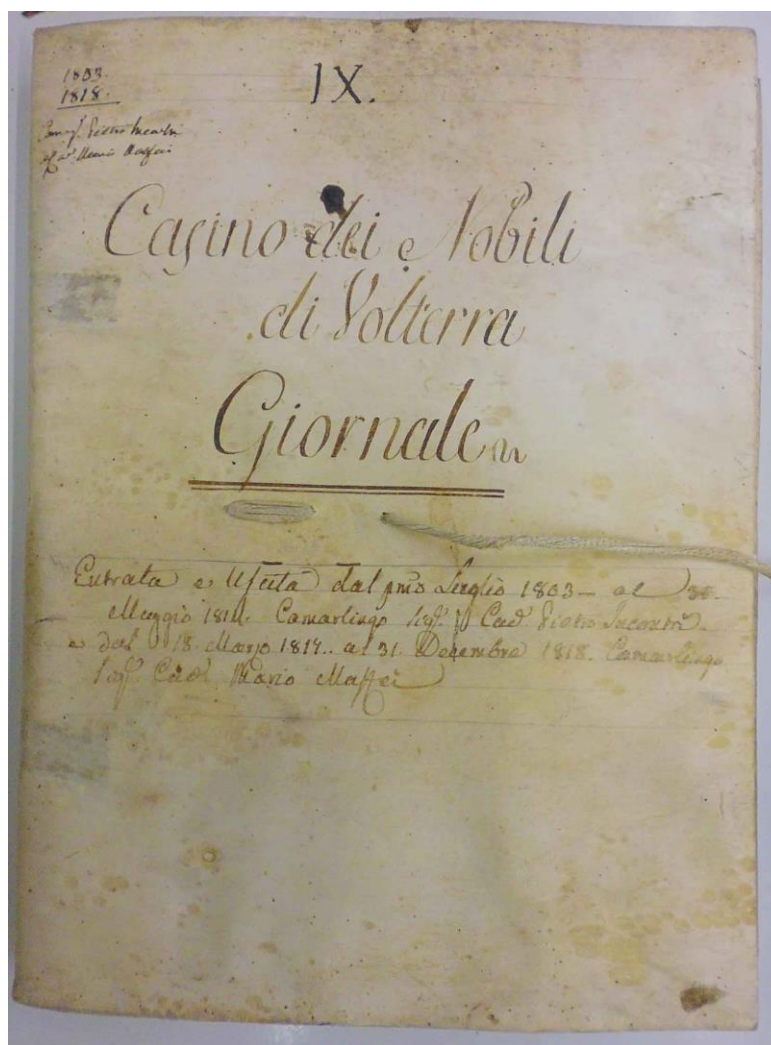 1803.
1818.
IX.
Camg. Pietro Incontri
e Cav. Mario Maffei
Casino dei Nobili
di Volterra
Giornale
Entrata e Uscita dal pmo Luglio 1803 – al 31.
Maggio 181 Camarlingo Sigr. Cav Pietro Incontri
e dal 18. Marzo 1817. al 31. Decembre 1818. Camarlingo
Sigr. Cav. Mario Maffei